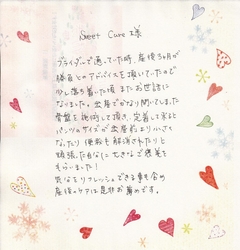 Sweet Cure 様
ブライダルで通っていた時、産後3ヶ月が
検査とのアドバイスを頂いていたので
少し落ち着いた頃 またお世話に
なりました。出産でかなり開いていた
骨盤を施術して頂き、定着して来ると
パンツのサイズが出産前より小さく
なったり 便秘も解消されたりと
頑張った自分に大きなご褒美を
もらいました!
気分もリフレッシュできる事も含め
産後のケアは是非お薦めです。